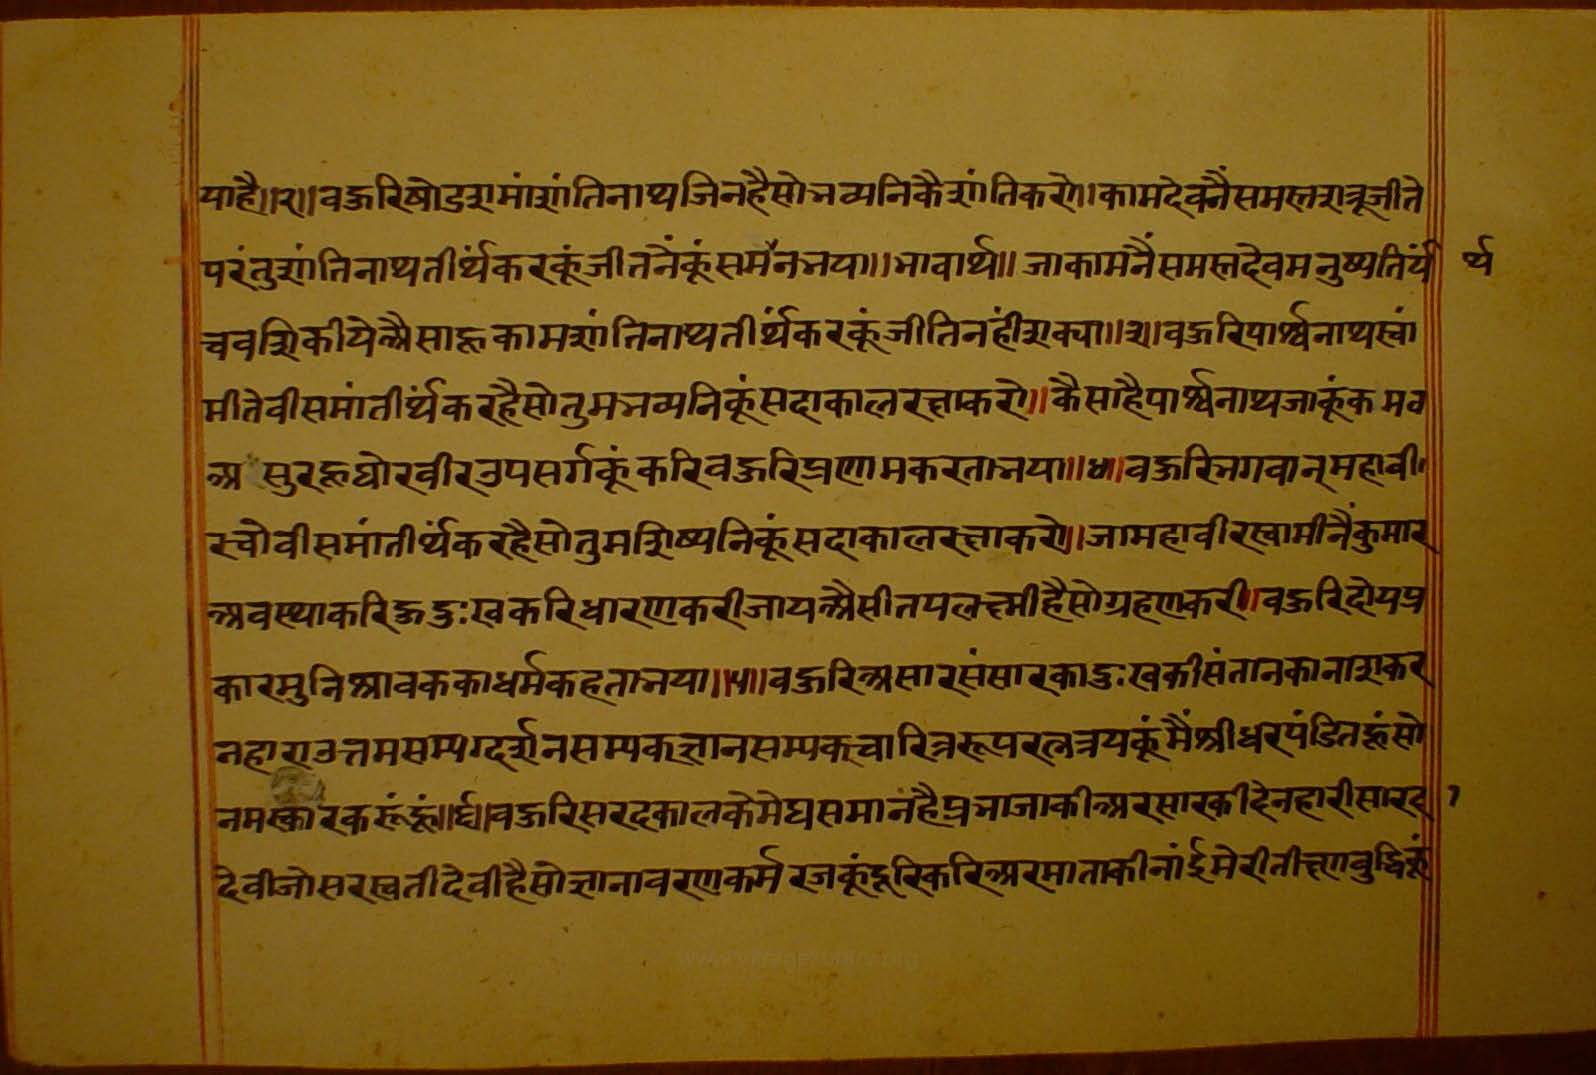 याहै॥२॥बहुरिषोडशमांशांतिनाथजिनहैसोभव्यनिकैशांतिकरो॥कामदेवनैंसमस्तशत्रूजीते
परंतुशांतिनाथतीर्थंकरकूंजीतनैंकूंसमर्थनभया॥भावार्थ॥जाकामनैंसमस्तदेवमनुष्यतिर्यं
चवशिकीयेअैसाहूकामशांतिनाथतीर्थंकरकूंजीतिनहींशक्या॥३॥बहुरिपार्श्वनाथस्वां
मीतेवीसमांतीर्थंकरहैसोतुमभव्यनिकूंसदाकालरक्षाकरो॥कैसाहैपार्श्वनाथजाकूंकमठ
असुरहूघोरवीरउपसर्गकूंकरिबहुरिप्रणामकरताभया॥४॥बहुरिभगवान्महावी
रचोवीसमांतीर्थंकरहैसोतुमशिष्यनिकूंसदाकालरक्षाकरो॥जामहावीरस्वामीनैंकुमार
अवस्थाकरिहूदुःखकरिधारणकरीजायअैसीतपलक्ष्मीहैसोग्रहणकरी॥बहुरिदोयप्र
कारमुनिश्रावककाधर्मकहताभया॥५॥बहुरिअसारसंसारकादुःखकीसंतानकानाशकर
नहाराउत्तमसम्यग्दर्शनसम्यकज्ञानसम्यक्चारित्ररूपरत्नत्रयकूंमैंश्रीधरपंडितहूंसो
नमस्कारकरूंहूं॥६॥बहुरिसरदकालकेमेघसमानंहैप्रभाजाकीअरसारकीदेनहारीसारद
देवीजोसरस्वतीदेवीहैसोज्ञानावरणकर्मरजकूंदूरिकरिअरमाताकीनांईमेरीतीक्ष्णबुद्धिकूं
र्थ